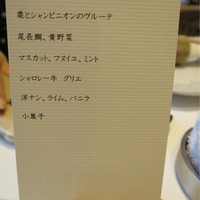 栗とシャンピニオンのヴルーテ
尾長鯛、黄野菜
マスカット、フヌイユ、ミント
シャロレー牛　グリエ
洋ナシ、ライム、バニラ
小菓子